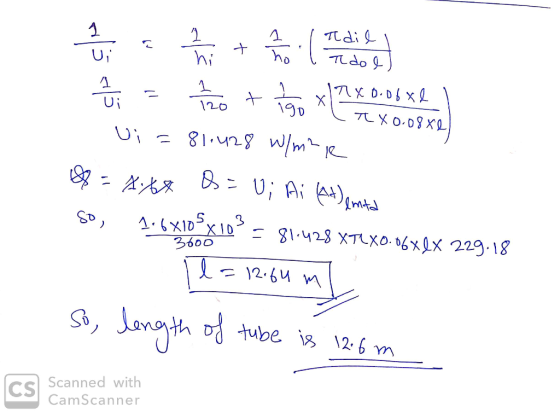 1/Ui = 1/hi + 1/ho · (πdil / πdol)
1/Ui = 1/120 + 1/190 × (π × 0.06 × l / π × 0.08 × l)
Ui = 81.428 W/m² K
Q = Ui Ai (Δt)lmtd
So, 1.6×10⁵×10³ / 3600 = 81.428 × π × 0.06 × l × 229.18
l = 12.64 m
So, length of tube is 12.6 m
CS Scanned with
CamScanner